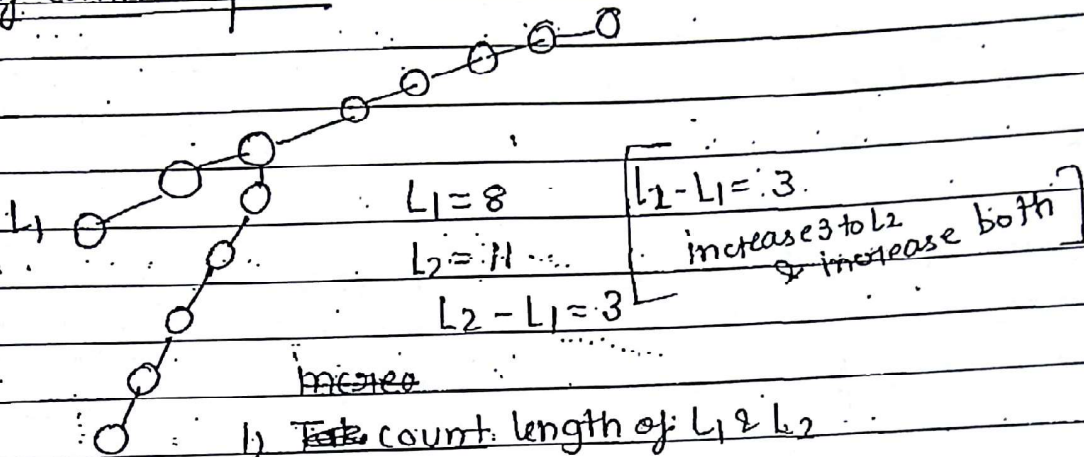 L1
L1 = 8
L2 = 11
L2 - L1 = 3
L2 - L1 = 3.
increase 3 to L2
& increase both
1) count length of L1 & L2